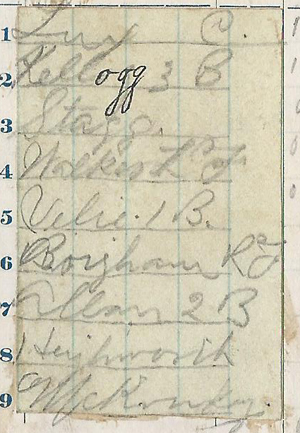 1 Lux C.
2 Kellogg 3 B
3 Stagg.
4 Walker L F
5 Velie. 1 B.
6 Borgham R F
7 Allan 2 B
8 Heighworth
9 McKenday